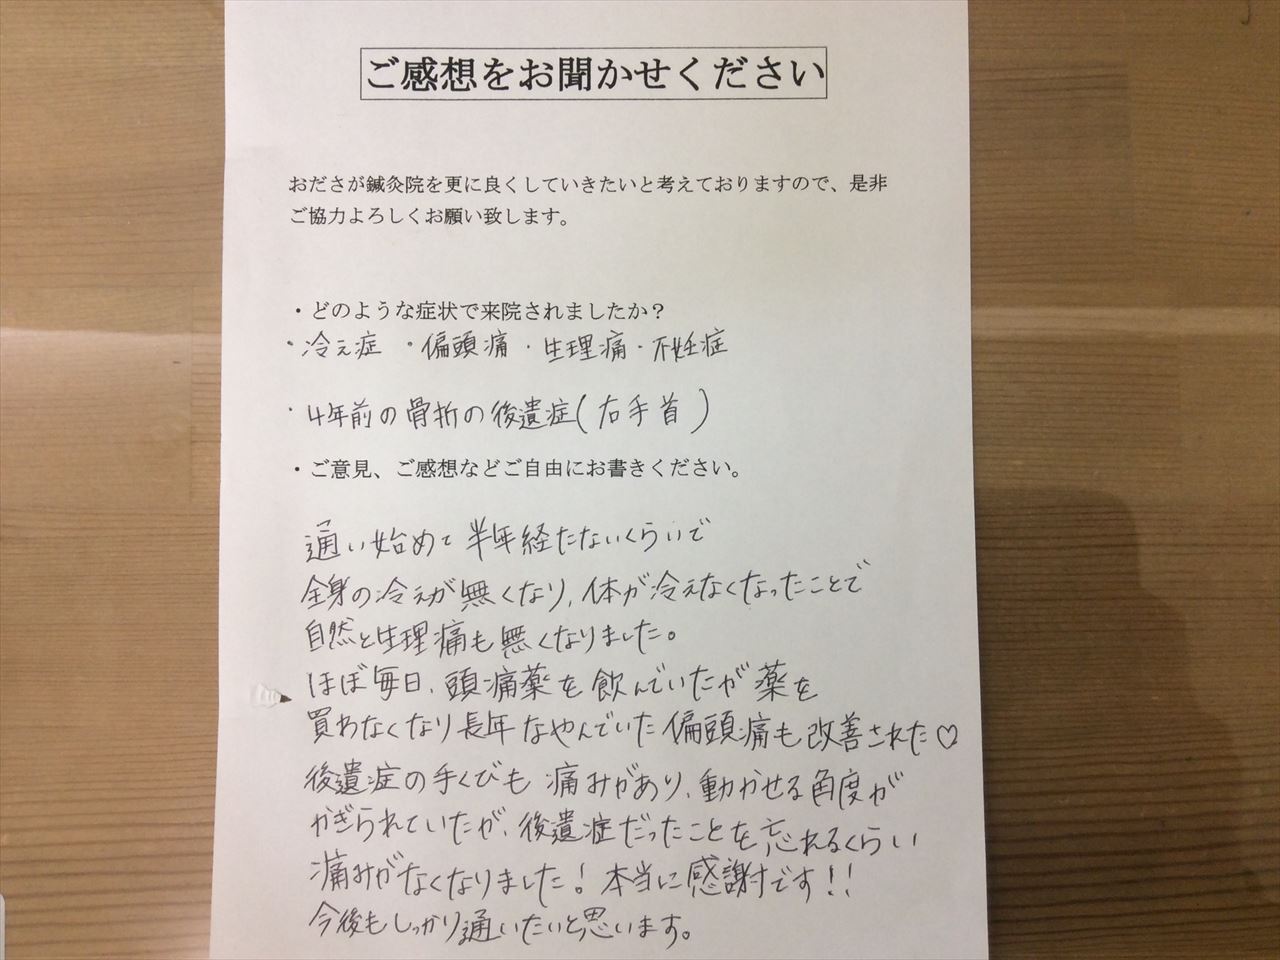 ご感想をお聞かせください
おださが鍼灸院を更に良くしていきたいと考えておりますので、是非
ご協力よろしくお願い致します。
・どのような症状で来院されましたか？
・冷え症 ・偏頭痛・生理痛・不妊症
・4年前の骨折の後遺症(右手首)
・ご意見、ご感想などご自由にお書きください。
通い始めて半年経たないくらいで
全身の冷えが無くなり、体が冷えなくなったことで
自然と生理痛も無くなりました。
ほぼ毎日、頭痛薬を飲んでいたが薬を
買わなくなり長年なやんでいた偏頭痛も改善された♡
後遺症の手くびも痛みがあり、動かせる角度が
かぎられていたが、後遺症だったことを忘れるくらい
痛みがなくなりました！本当に感謝です！！
今後もしっかり通いたいと思います。